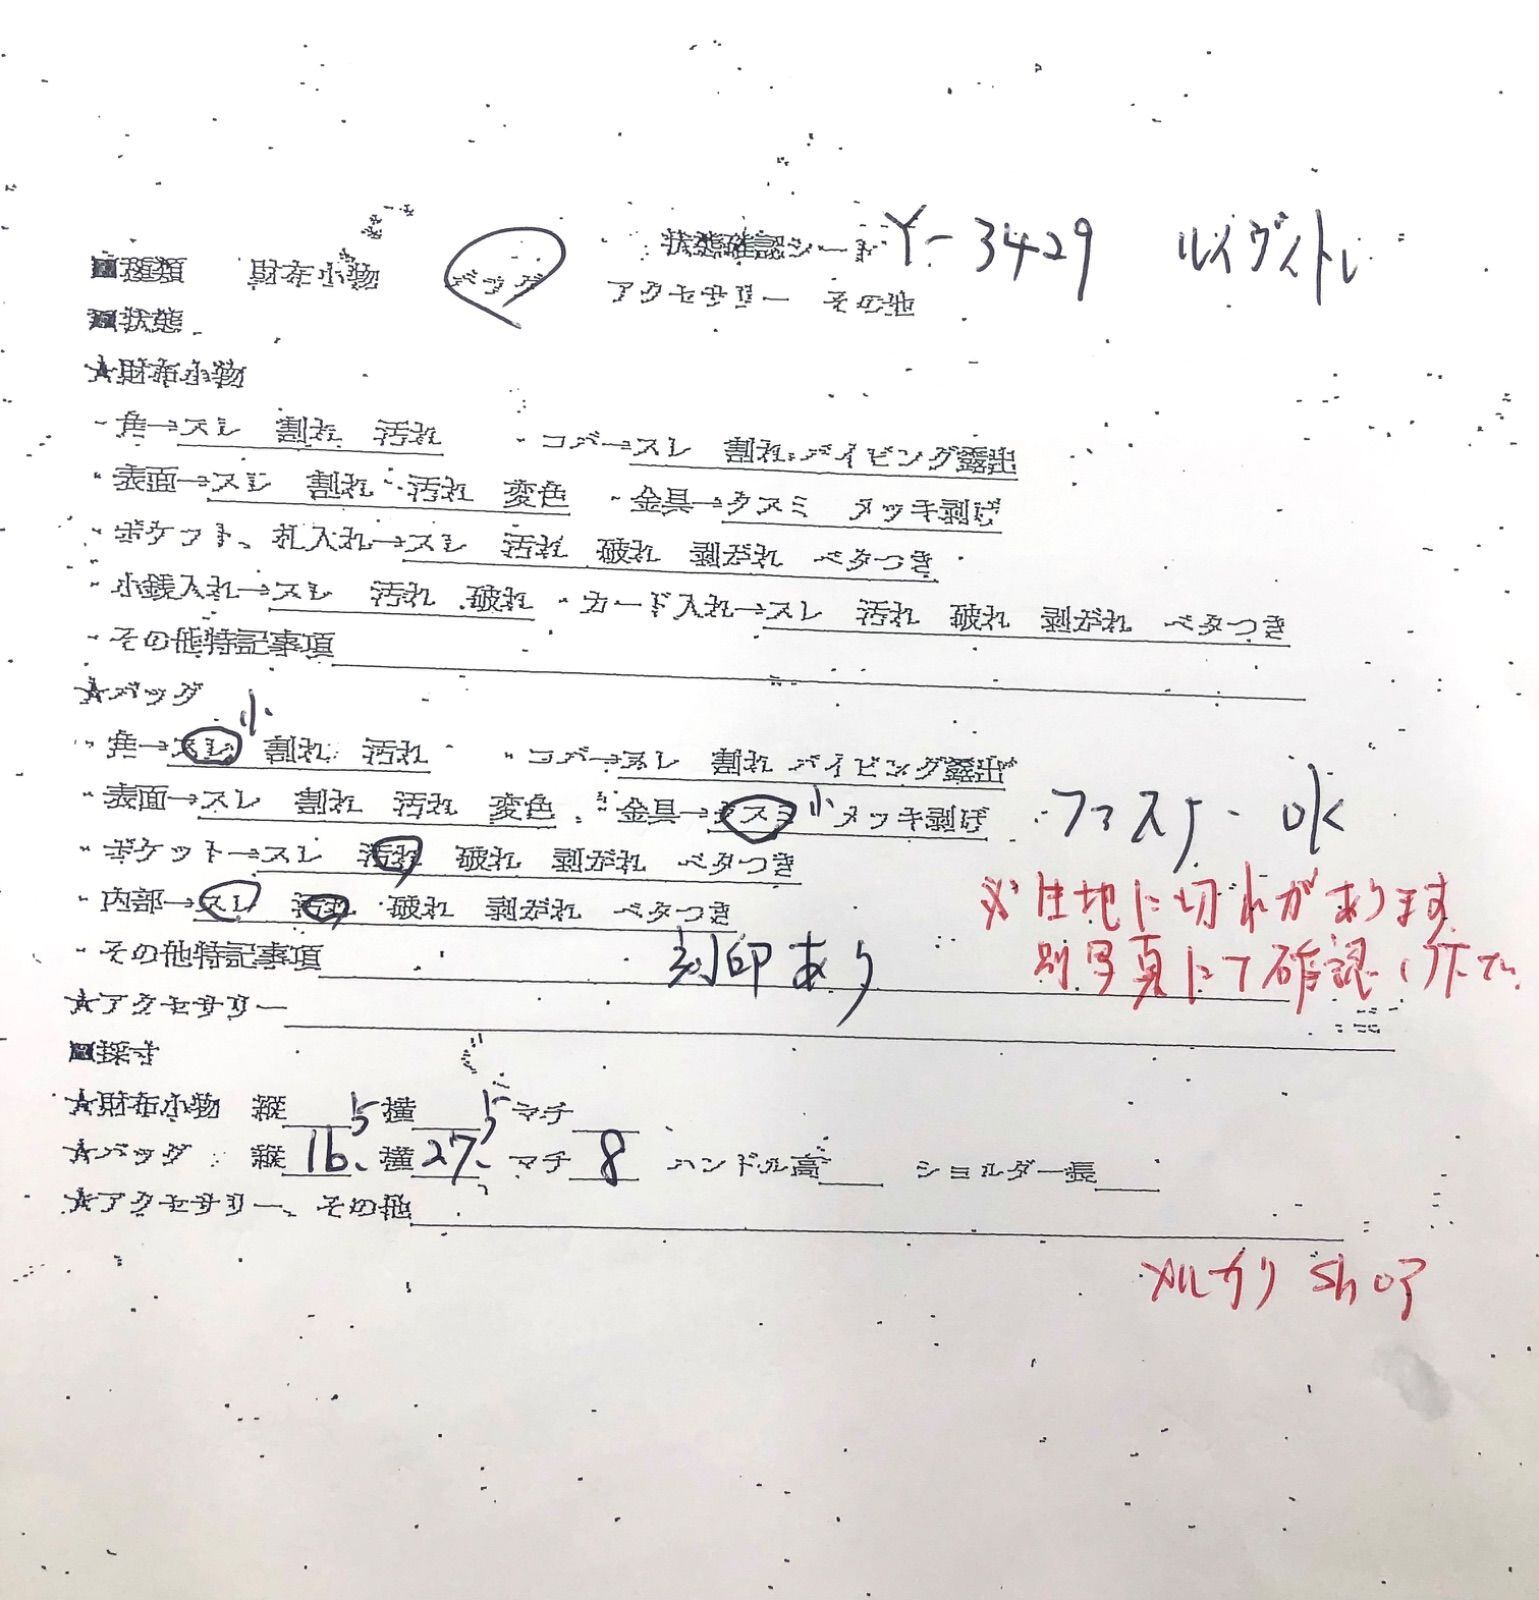 状態確認シート Y-3429 ルイヴィトン
■種類 財布小物 バッグ アクセサリー その他
■状態
★財布小物
・角→スレ 割れ 汚れ ・コバ→スレ 割れ パイピング露出
・表面→スレ 割れ 汚れ 変色 ・金具→クスミ メッキ剥げ
・ポケット、札入れ→スレ 汚れ 破れ 剥がれ ベタつき
・小銭入れ→スレ 汚れ 破れ ・カード入れ→スレ 汚れ 破れ 剥がれ ベタつき
・その他特記事項
★バッグ
・角→スレ 小 割れ 汚れ ・コバ→スレ 割れ パイピング露出
・表面→スレ 割れ 汚れ 変色 ・金具→クスミ 小 メッキ剥げ ファスナー OK
・ポケット→スレ 汚れ 破れ 剥がれ ベタつき
※生地に切れがあります
・内部→スレ 汚れ 破れ 剥がれ ベタつき
別写真にて確認下さい
・その他特記事項 刻印あり
★アクセサリー
■採寸
★財布小物 縦 横 マチ
★バッグ 縦 16.5 横 27.5 マチ 8 ハンドル高 ショルダー長
★アクセサリー、その他
メルカリ shop